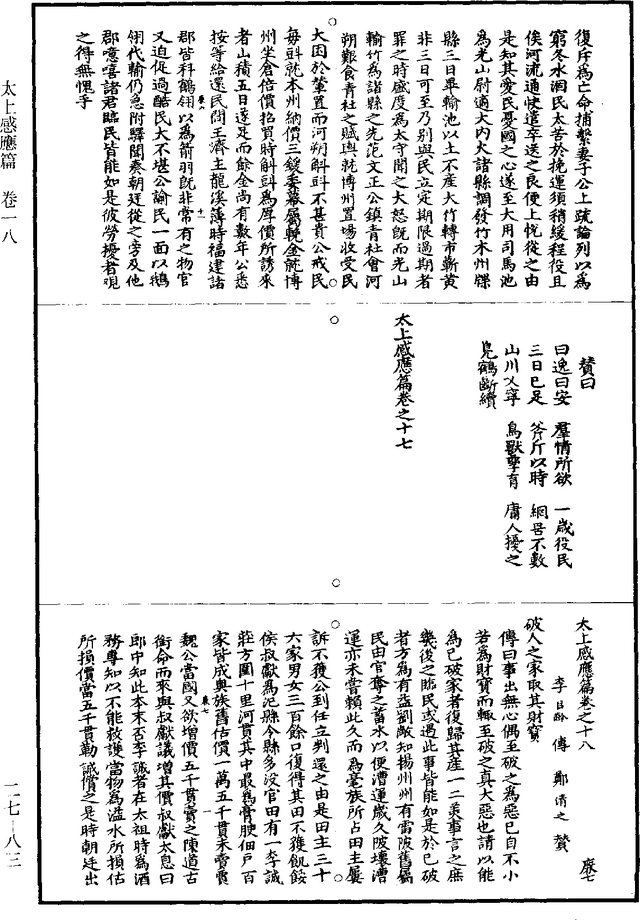 復斥為亡命捕繫妻子公上疏論列以為
窮冬水涸民太苦於挽運須稍緩程役且
俟河流通快遣卒送之良便上悅從之由
是知其愛民憂國之心遂至大用司馬池
為光山尉適大內火諸縣調發竹木州牒
縣三日畢輸池以土不產大竹轉市蘄黃
非三日可至乃別與民立定期限過期者
罪之時盛度為太守聞之大怒既而光山
輸竹為諸縣之先范文正公鎮青社會河
朔艱食青社之賦輿就博州置場收受民
大困於輦置而河朔斛㪷不甚貴公戒民
每㪷就本州納價三鍰委幕屬輓金就博
州坐倉倍價招買時斛㪷為厚價所誘來
者山積五日遂足而餘金尚有數年公悉
按等給還民間王濟主龍溪簿時福建諸
郡皆科鶴翎以為箭羽既非常有之物官
又迫促過酷民大不堪公諭民一面以鵝
翎代輸仍急附驛聞奏朝廷從之旁及他
郡噫嘻諸君臨民皆能如是彼勞擾者觀
之得無愧乎
贊曰
曰逸曰安 羣情所欲 一歲役民
三日已足 斧斤以時 網罟不數
山川乂寧 鳥獸孳育 庸人擾之
鳧鶴斷續
太上感應篇卷之十七
太上感應篇卷之十八
李昌齡 傳 鄭清之 贊
破人之家取其財寶
傳曰事出無心偶至破之為惡已自不小
若為財寶而輒至破之真大惡也請以能
為已破家者復歸其產一二美事言之庶
幾後之臨民或過此事皆能如是於已破
者方為有益劉敞知揚州州有雷陂舊屬
民由官奪之蓄水以便漕運歲久陂壞漕
運亦未嘗賴此久而為毫族所占田主屢
訴不獲公到任立判還之由是田主三十
六家男女三百餘口復得其田不獲飢餒
侯叔獻為汜縣令縣多沒官田有一李誠
莊方圓十里河貫其中最為膏腴佃戶百
家皆成輿族舊估價一萬五千貫未賣賈
魏公當國又欲增價五千貫賣之陳道古
銜命而來與叔獻議增其價叔獻太息曰
郎中知此本末否李誠者在太祖時為酒
務專知以不能救護官物為溢水所損估
所損價當五千貫勒誠償之是時朝廷出
太上感應篇 卷一八
二七-八三